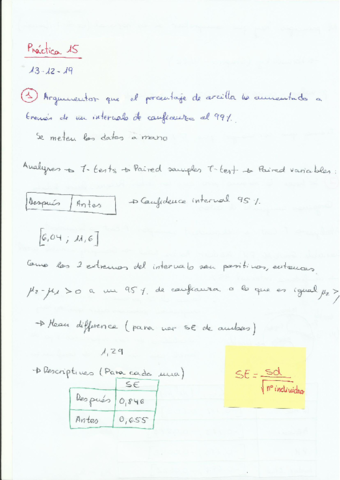 Práctica 15
13-12-19
① Argumentar que el porcentaje de arcilla ha aumentado a
través de un intervalo de confianza al 99%.
Se meten los datos a mano
Analyses → T-tests → Paired samples T-test → Paired variables:
Después | Antes → Confidence interval 95%
[6,04, 11,6]
Como los 2 extremos del intervalo son positivos, entonces
μ₂-μ₁>0 a un 95% de confianza o lo que es igual μ₂>
→ Mean difference (para ver SE de ambos)
1,29
→ Descriptives (Para cada una)
SE
Después 0,846
Antes 0,655
SE = sd / √nº individuos